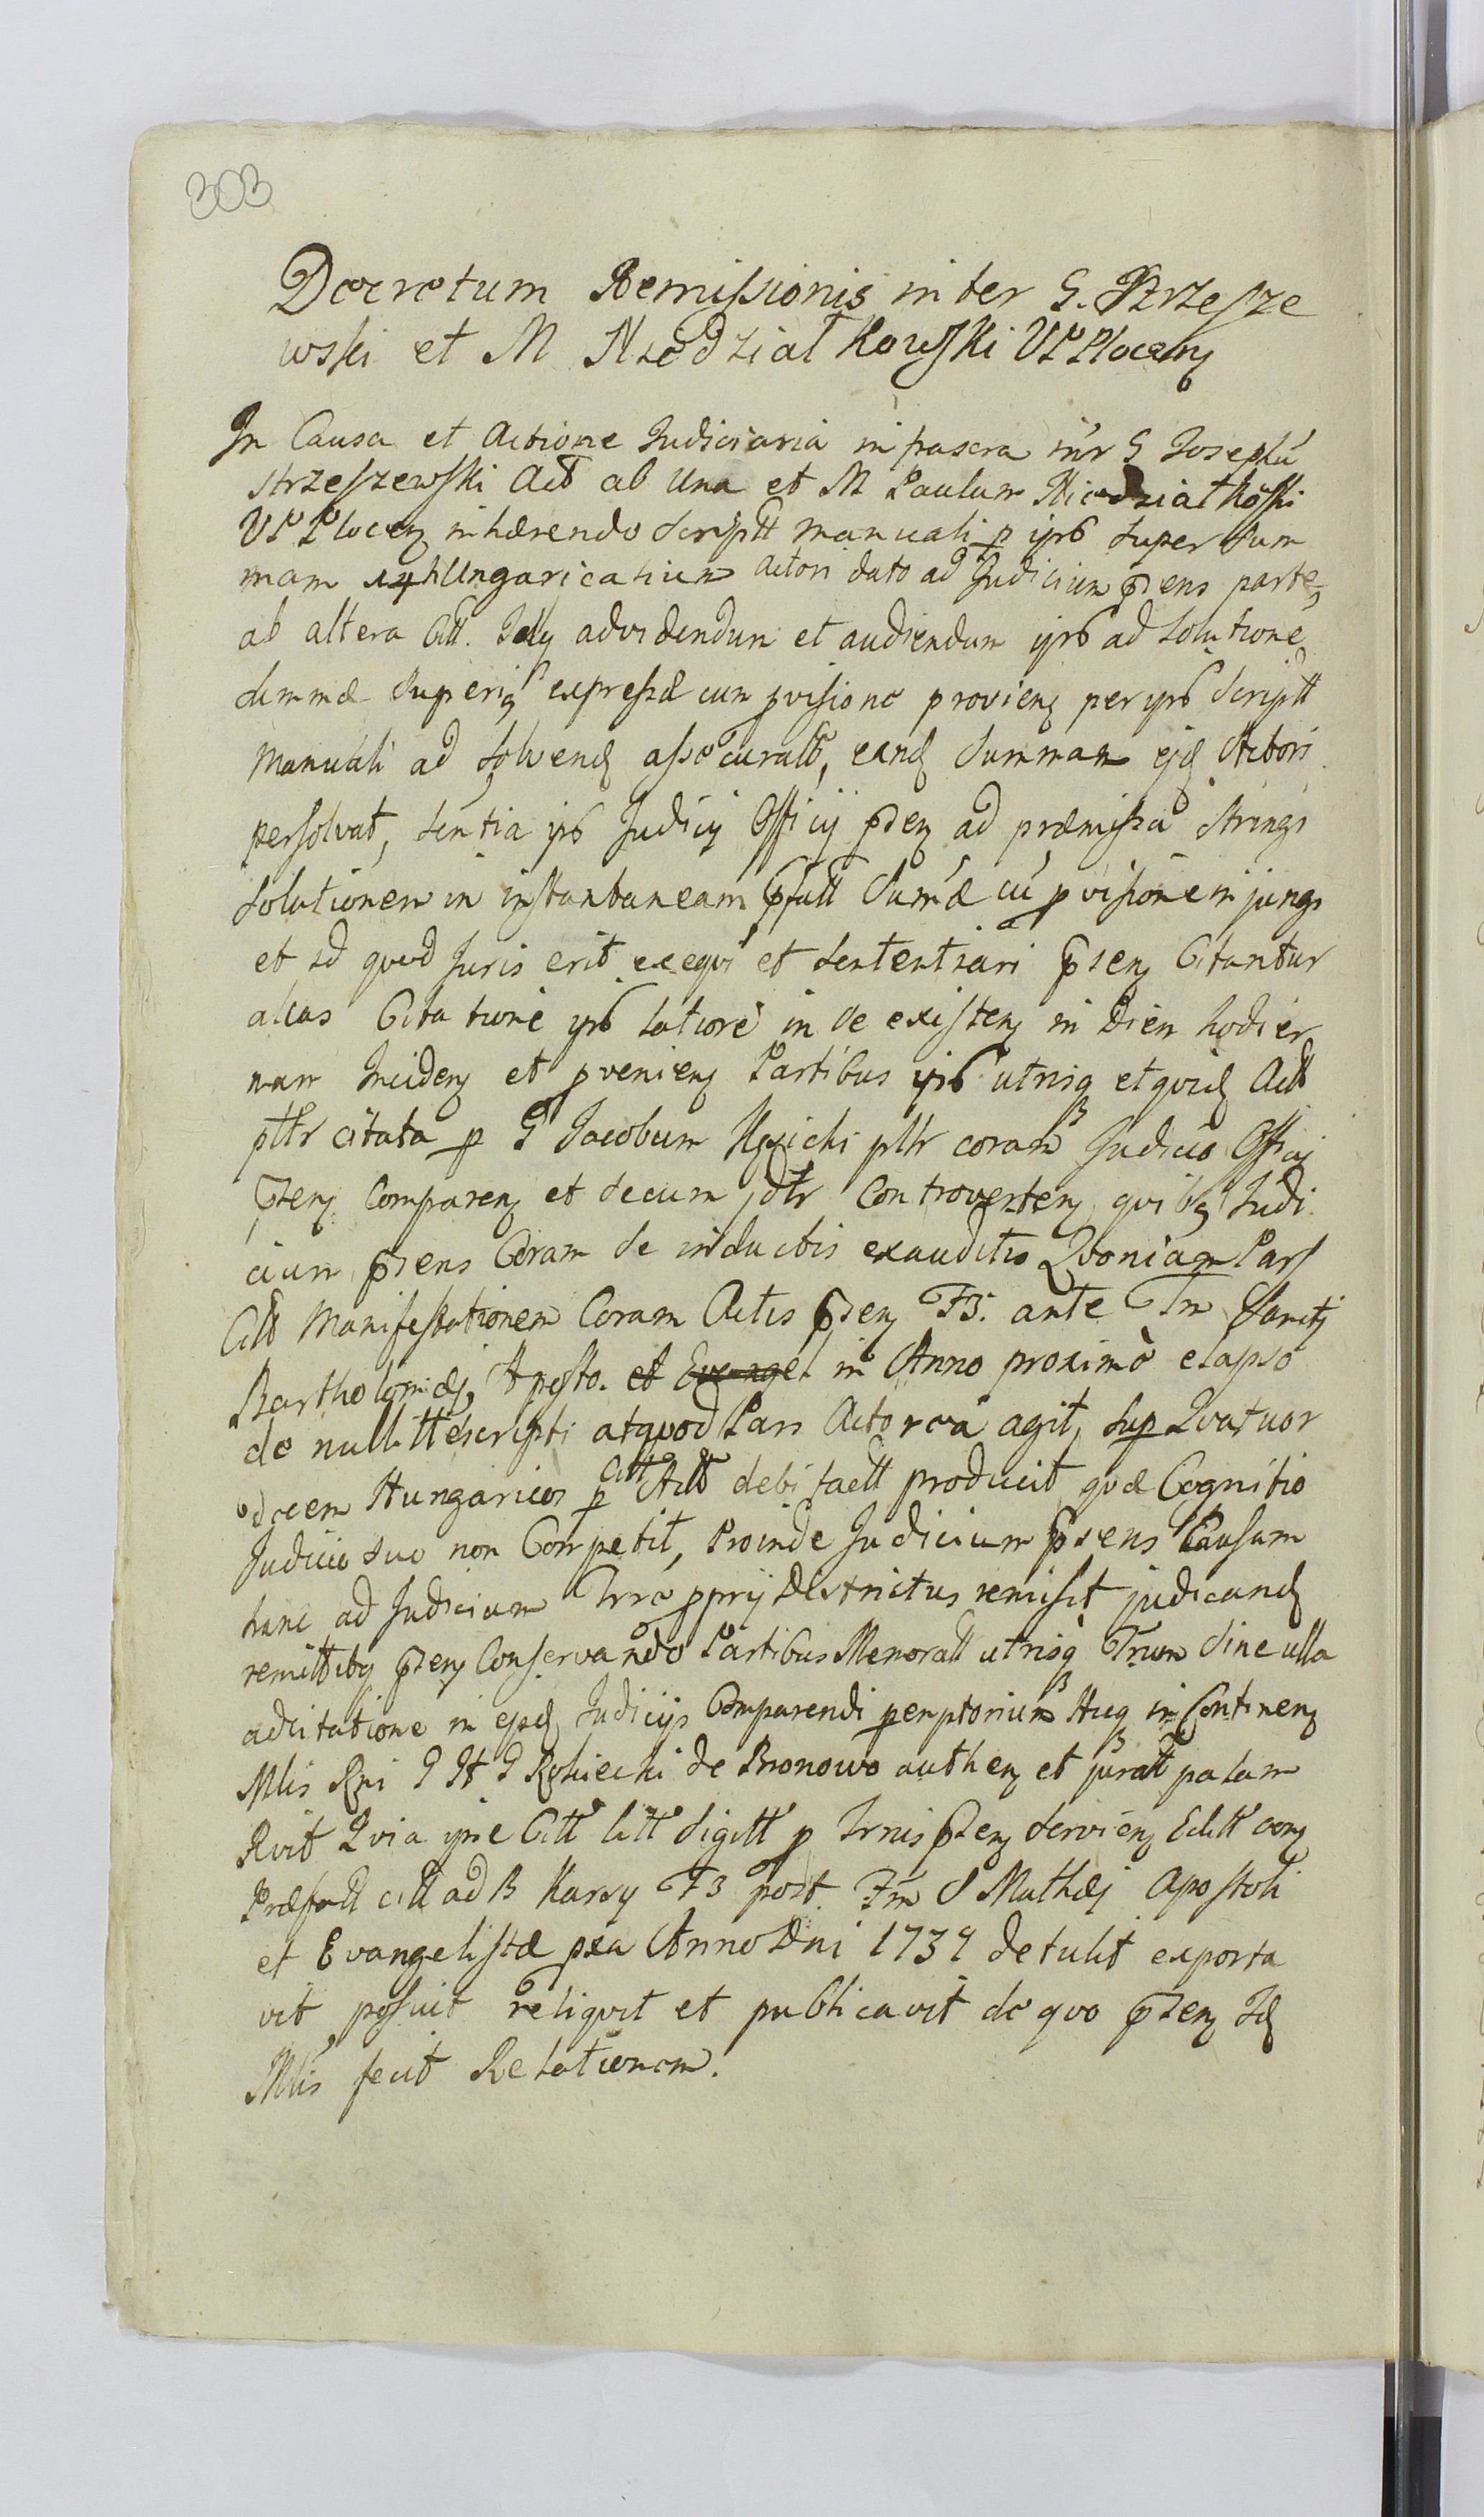 303
Decretum Remissionis inter G. Strzesze
wski et M Niedziałkowski VP Plocen
In Causa et Actione Judiciaria infrascra inr G Josephu
Strzeszewski Act ab Una et M Paulum Niedziałkoski
VP Plocen inhærendo Scriptt manuali p ips super Sum
mam 14 hUngaricalium Actori dato ad Judicium pnens parte
ab altera Citt. Idq advidendum et audiendum ips ad Solutione
Summæ Superiq expressæ cum pvisione provien per ips Scriptt
manuali ad Solvend assecuratt, eand Summam ejd Actori
persolvat, Sentia ips Judicij Officij pnen ad præmissa Stringi
Solutionem in instantaneam pfatt Sumæ cu pvisione injungi
et id quod Juris erit exequi et Sententiari pnen Citantur
alias Citatione ips latiore in Se existen in Diem hodier
nam Inciden et pvenien Partibus ips utrisq et quid Act
pltr citata p G Jacobum pltr coram Judicio Officij
pnen Comparen et Secum jdtr Controverten quibq Judi
cium pnens Coram Se inductis exauditis Quoniam Pars
Citt Manifestationem Coram Actis pnen F3. ante Fm Sancti
Bartholomæj Aposto. et Evangel in Anno proximo elapso
de nullitt Scripti atquod Pars Actorea agit, Sup Quatuor
decem Hungaricos p Citt Actt debi factt producit, quæ Cognitio
Judicio Suo non Competit, Proinde Judicium pnens Causam
hanc ad Judicium Trre pprij Districtus remisit judicand
remittitq pnen Conservando Partibus Memoratt utrisq Trum Sine ulla
adcitatione in ejsd Judicijs Comparendi peremptorium Huq in Continen
Mlis Rni G H G de Bronowo authen et juratt palam
Rvit Quia ipse Citt litt Sigitt p Trnis pnen Servien Editt
Præfatt citt ad B Karsy F3 post Fm S Mathæj Apostoli
et Evangelistæ pxa Anno Dni 1739 detulit exporta
vit posuit reliquit et publicavit de quo pnen Id
Mlis fecit Relationem.